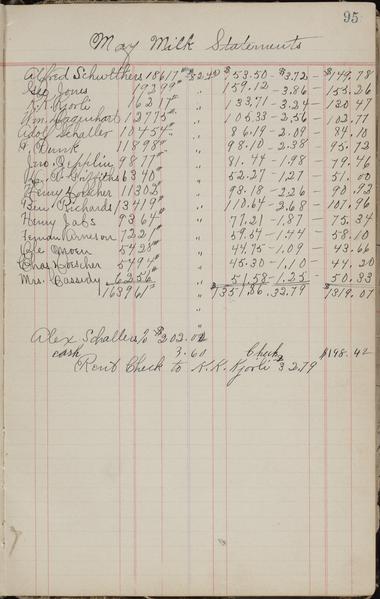 95
May Milk Statements
Alfred Schulthers 15617# $53.50 - $3.72 - $149.78
Geo Jones 19299# " 159.12 - 3.86 - 155.26
K. K. Kjorli 16217# " 133.71 - 3.24 - 130.47
Wm Farquhart 12775# " 105.33 - 2.56 - 102.77
Adol Schaller 10454# " 86.19 - 2.09 - 84.10
Dunk 11898# " 98.10 - 2.38 - 95.72
Jno Zepplin 9877# " 81.44 - 1.98 - 79.46
Griffiths 6340# " 52.27 - 1.27 - 51.00
Henry Loscher 11302 " 93.18 - 2.26 - 90.92
Ben Richards 13419# " 110.64 - 2.68 - 107.96
Henry Jabs 9364# " 77.21 - 1.87 - 75.34
Arneson 7221# " 59.54 - 1.44 - 58.10
Ole Moen 5428# " 44.75 - 1.09 - 43.66
Chas Loscher 5494# " 45.30 - 1.10 - 44.20
Mrs. Cassidy 6256 " 51.58 - 1.25 - 50.33
163961# $1351.86 32.79 $1319.07
Alex Schallers % $202.02
cash 3.60 Check $198.42
Rent Check to K. K. Kjorli 32.79